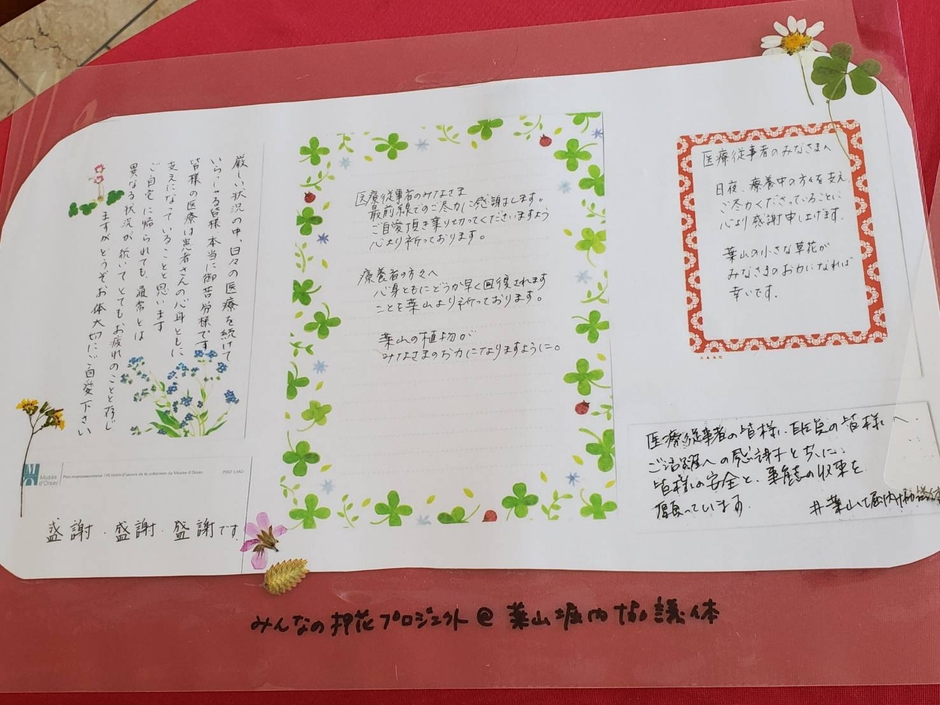 厳しい状況の中、日々の医療を続けて
いらっしゃる皆様 本当に御苦労様です
皆様の医療は患者さんの心身ともに
支えになっていることと思います
ご自宅に帰られても、通常とは
異なる状況が続いてとてもお疲れのことと存じ
ますがどうぞお体大切にご自愛下さい
Musée d'Orsay
感謝、感謝、感謝です
医療従事者のみなさま
最前線でのご尽力に感謝します。
ご自愛頂き乗り切ってくださいますよう
心より祈っております。
療養者の方々へ
心身ともにどうか早く回復されます
ことを葉山より祈っております。
葉山の植物が
みなさまのお力になりますように。
医療従事者のみなさまへ
日夜、療養中の方々を支え
ご尽力くださっていることに
心より感謝申し上げます。
葉山の小さな草花が
みなさまのお力になれば
幸いです。
医療従事者の皆様、自住民の皆様へ
ご活躍への感謝とともに、
皆様の安全と、事態の収束を
願っています
#葉山
みんなの押花プロジェクト@葉山堀内な議体